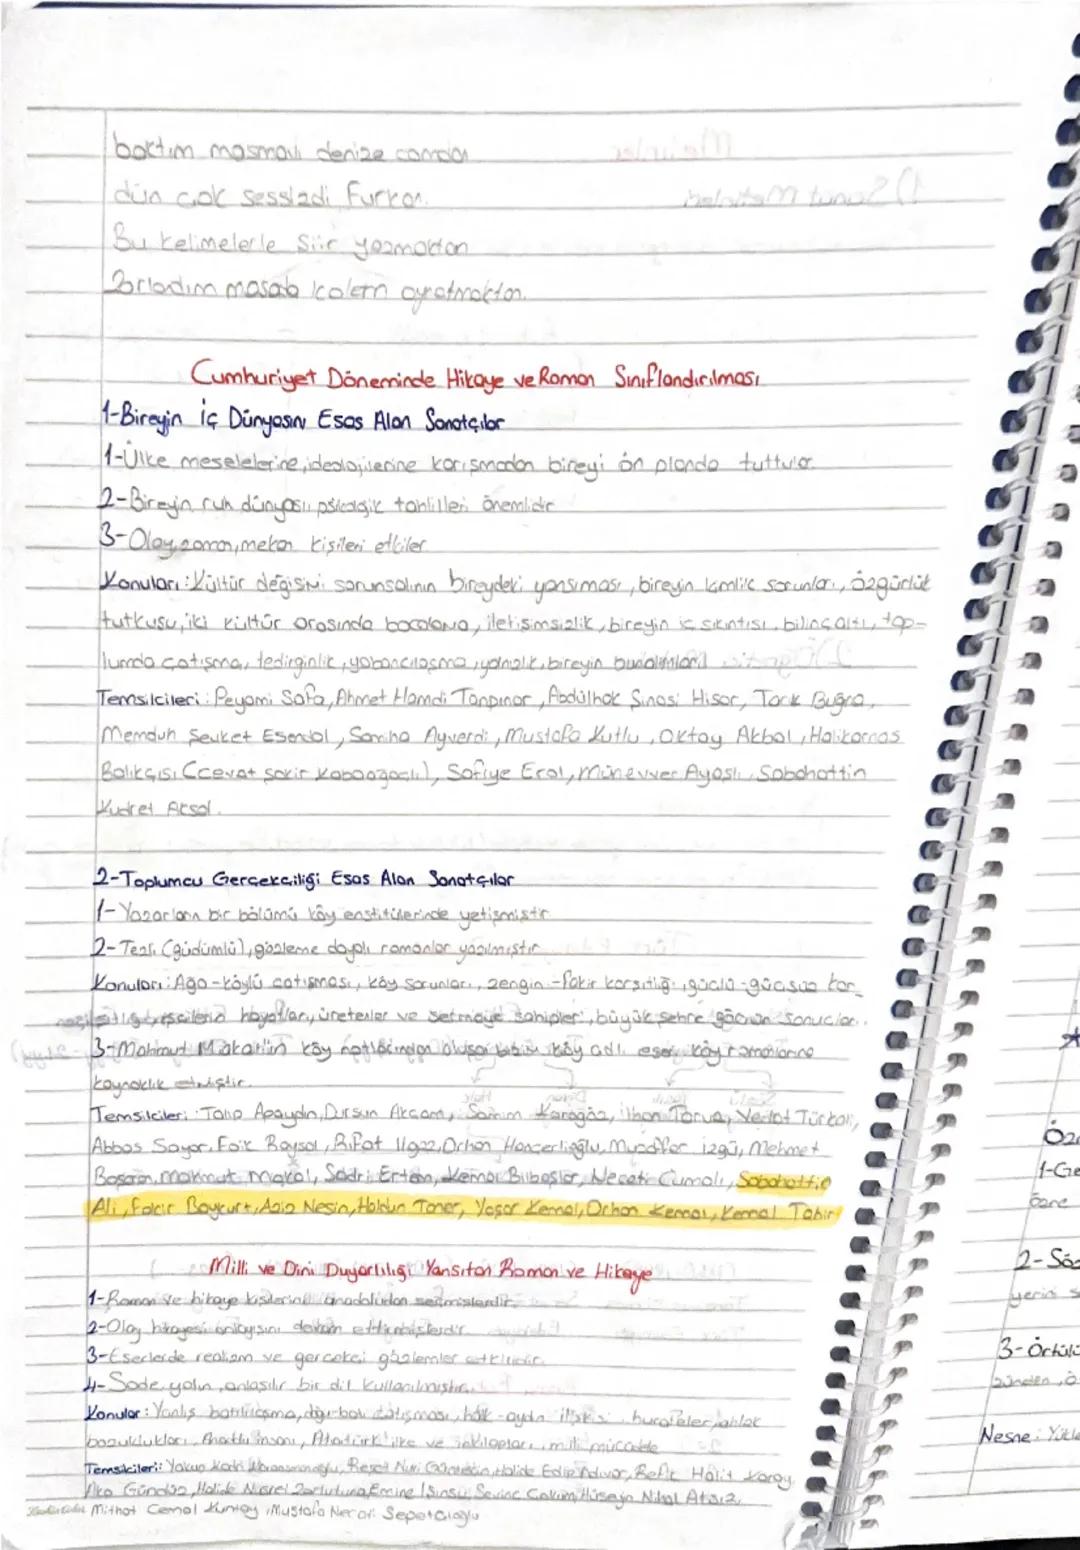 baktım masmavi denize camdan
dün çok sessizdi Furkan.
Bu kelimelerle şiir yazmaktan
Zorladım masada kalem oynatmaktan.
Cumhuriyet Döneminde Hikaye ve Roman Sınıflandırılması
1-Bireyin İç Dünyasını Esas Alan Sanatçılar
1-Ülke meselelerine, ideolojilerine karışmadan bireyi ön planda tuttular.
2-Bireyin ruh dünyası, psikolojik tahlilleri önemlidir
3-Olay, zaman, mekan kişileri etkiler
Konuları: Kültür değişimi sorunsalının bireydeki yansıması, bireyin kimlik sorunları, özgürlük
tutkusu, iki kültür arasında bocalama, iletişimsizlik, bireyin iç sıkıntısı, bilinçaltı, top-
lumda çatışma, tedirginlik, yabancılaşma, yalnızlık, bireyin bunalımları
Temsilcileri: Peyami Safa, Ahmet Hamdi Tanpınar, Abdülhak Şinasi Hisar, Tarık Buğra,
Memduh Şevket Esendal, Samiha Ayverdi, Mustafa Kutlu, Oktay Akbal, Halikarnas
Balıkçısı (Cevat Şakir Kabaağaçlı), Safiye Erol, Münevver Ayaşlı, Sabahattin
Kudret Aksal.
2-Toplumcu Gerçekçiliği Esas Alan Sanatçılar
1-Yazarların bir bölümü köy enstitülerinde yetişmiştir
2-Tezli (güdümlü), gözleme dayalı romanlar yazılmıştır
Konuları: Ağa-köylü çatışması, köy sorunları, zengin-fakir karşıtlığı, güçlü-güçsüz kar_
hayatları, üretenler ve sermaye sahipleri, büyük şehre göçün sonuçları.
3-Mahmut Makal'ın köy notlarından oluşan bizim köy adlı eseri köy romanlarına
kaynaklık etmiştir.
Temsilcileri: Talip Apaydın, Dursun Akçam, Samim Kocagöz, İlhan Tarus, Vedat Türkali,
Abbas Sayar, Faik Baysal, Rıfat Ilgaz, Orhan Hançerlioğlu, Muzaffer İzgü, Mehmet
Başaran, Mahmut Makal, Sadri Ertem, Kemal Bilbaşar, Necati Cumalı, Sabahattin
Ali, Fakir Baykurt, Aziz Nesin, Haldun Taner, Yaşar Kemal, Orhan Kemal, Kemal Tahir
Milli ve Dini Duyarlılığı Yansıtan Roman ve Hikaye
1-Roman ve hikaye kişilerini anadoludan seçmişlerdir.
2-Olay hikayesi anlayışını devam ettirmişlerdir.
3-Eserlerde realizm ve gerçekçi gözlemler etkilidir.
4-Sade, yalın, anlaşılır bir dil kullanılmıştır.
Konular: Yanlış batılılaşma, doğu-batı çatışması, halk-aydın ilişkisi, hurafeler, ahlak
bozuklukları, Anadolu insanı, Atatürk ilke ve inkılapları, milli mücadele
Temsilcileri: Yakup Kadri Karaosmanoğlu, Reşat Nuri Güntekin, Halide Edip Adıvar, Refik Halit Karay,
Aka Gündüz, Halide Nusret Zorlutuna, Emine Işınsu, Sevinç Çokum, Hüseyin Nihal Atsız,
Mithat Cemal Kuntay, Mustafa Necati Sepetçioğlu
1-Ge
özne
2-Söz
yerini s
3-Örtülü
Nesne: Yükle